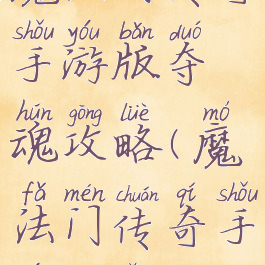 shǒu yóu bǎn duó
手游版夺
hún gōng lüè mó
魂攻略(魔
fǎ mén chuán qí shǒu
法门传奇手